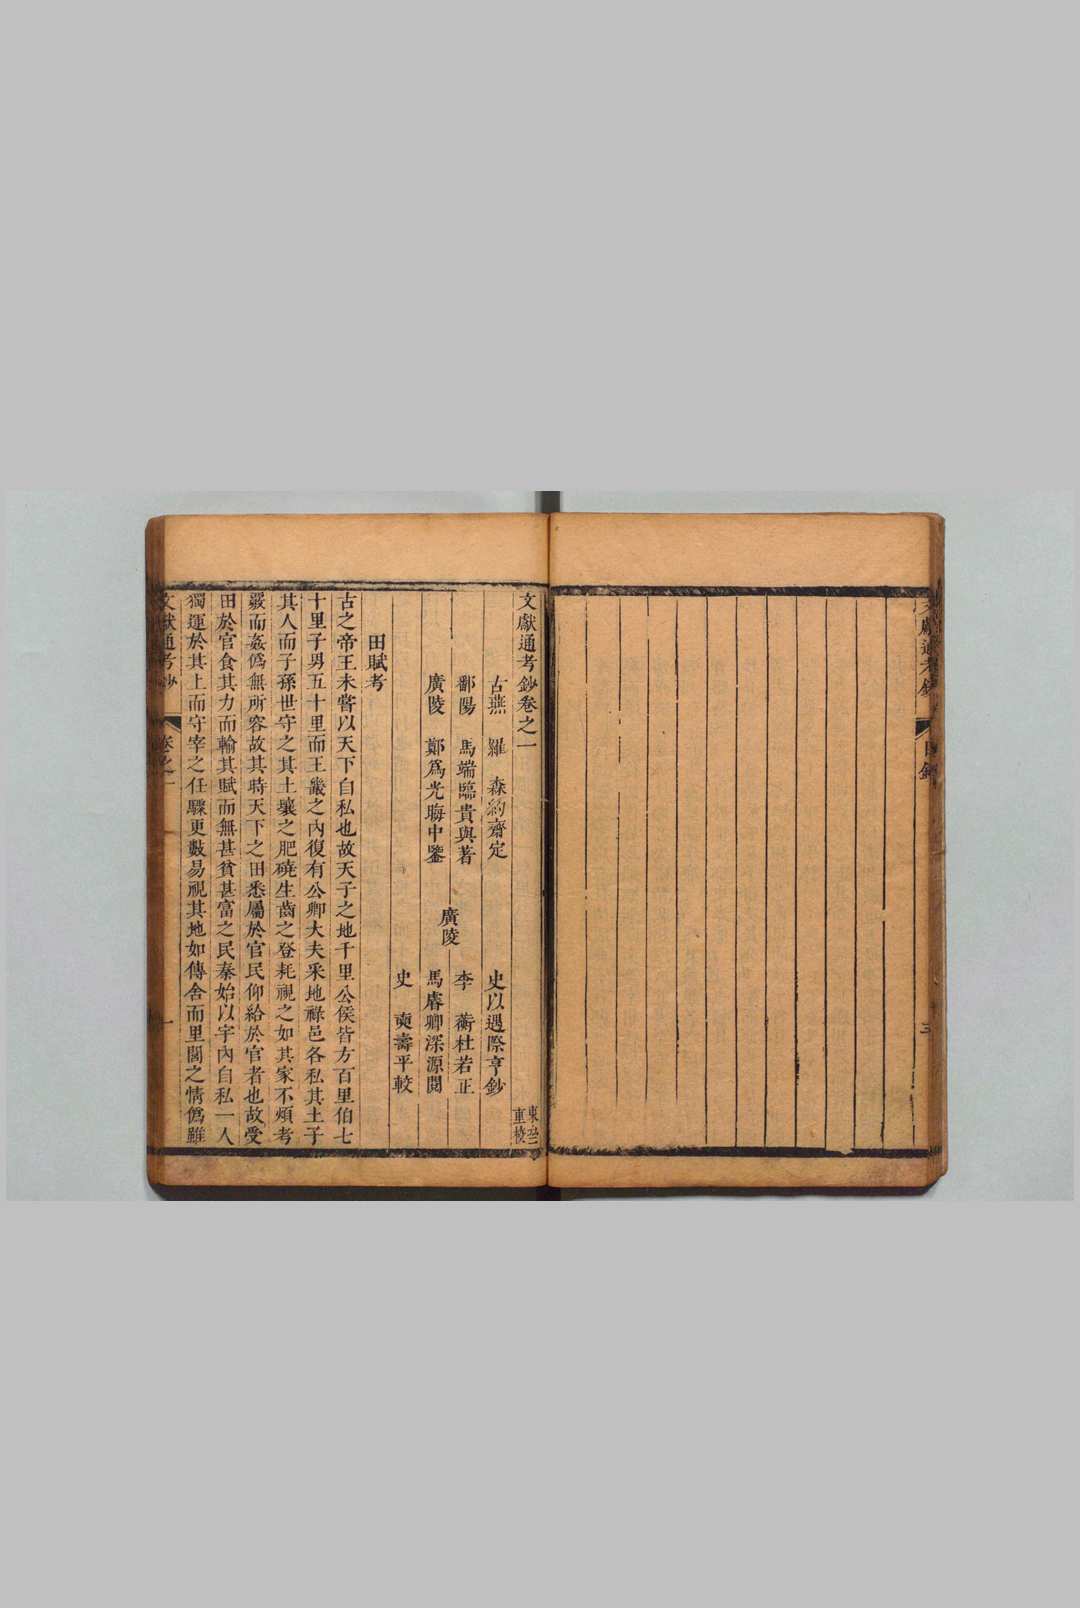 文獻通考鈔
目錄
三
文獻通考鈔卷之一
東竺重校
古燕　羅　森約齋定　史以遇際亨鈔
鄱陽　馬端臨貴與著　李　蘅杜若正
廣陵　鄭為光晦中鑒　廣陵　馬睿卿深源閱
史　奭壽平較
田賦考
古之帝王未嘗以天下自私也故天子之地千里公侯皆方百里伯七
十里子男五十里而王畿之內復有公卿大夫采地祿邑各私其土子
其人而子孫世守之其土壤之肥磽生齒之登耗視之如其家不煩考
覈而姦偽無所容故其時天下之田悉屬於官民仰給於官者也故受
田於官食其力而輸其賦而無甚貧甚富之民秦始以宇內自私一人
獨運於其上而守宰之任驟更數易視其地如傳舍而里閭之情偽雖
文獻通考鈔
卷之一
一